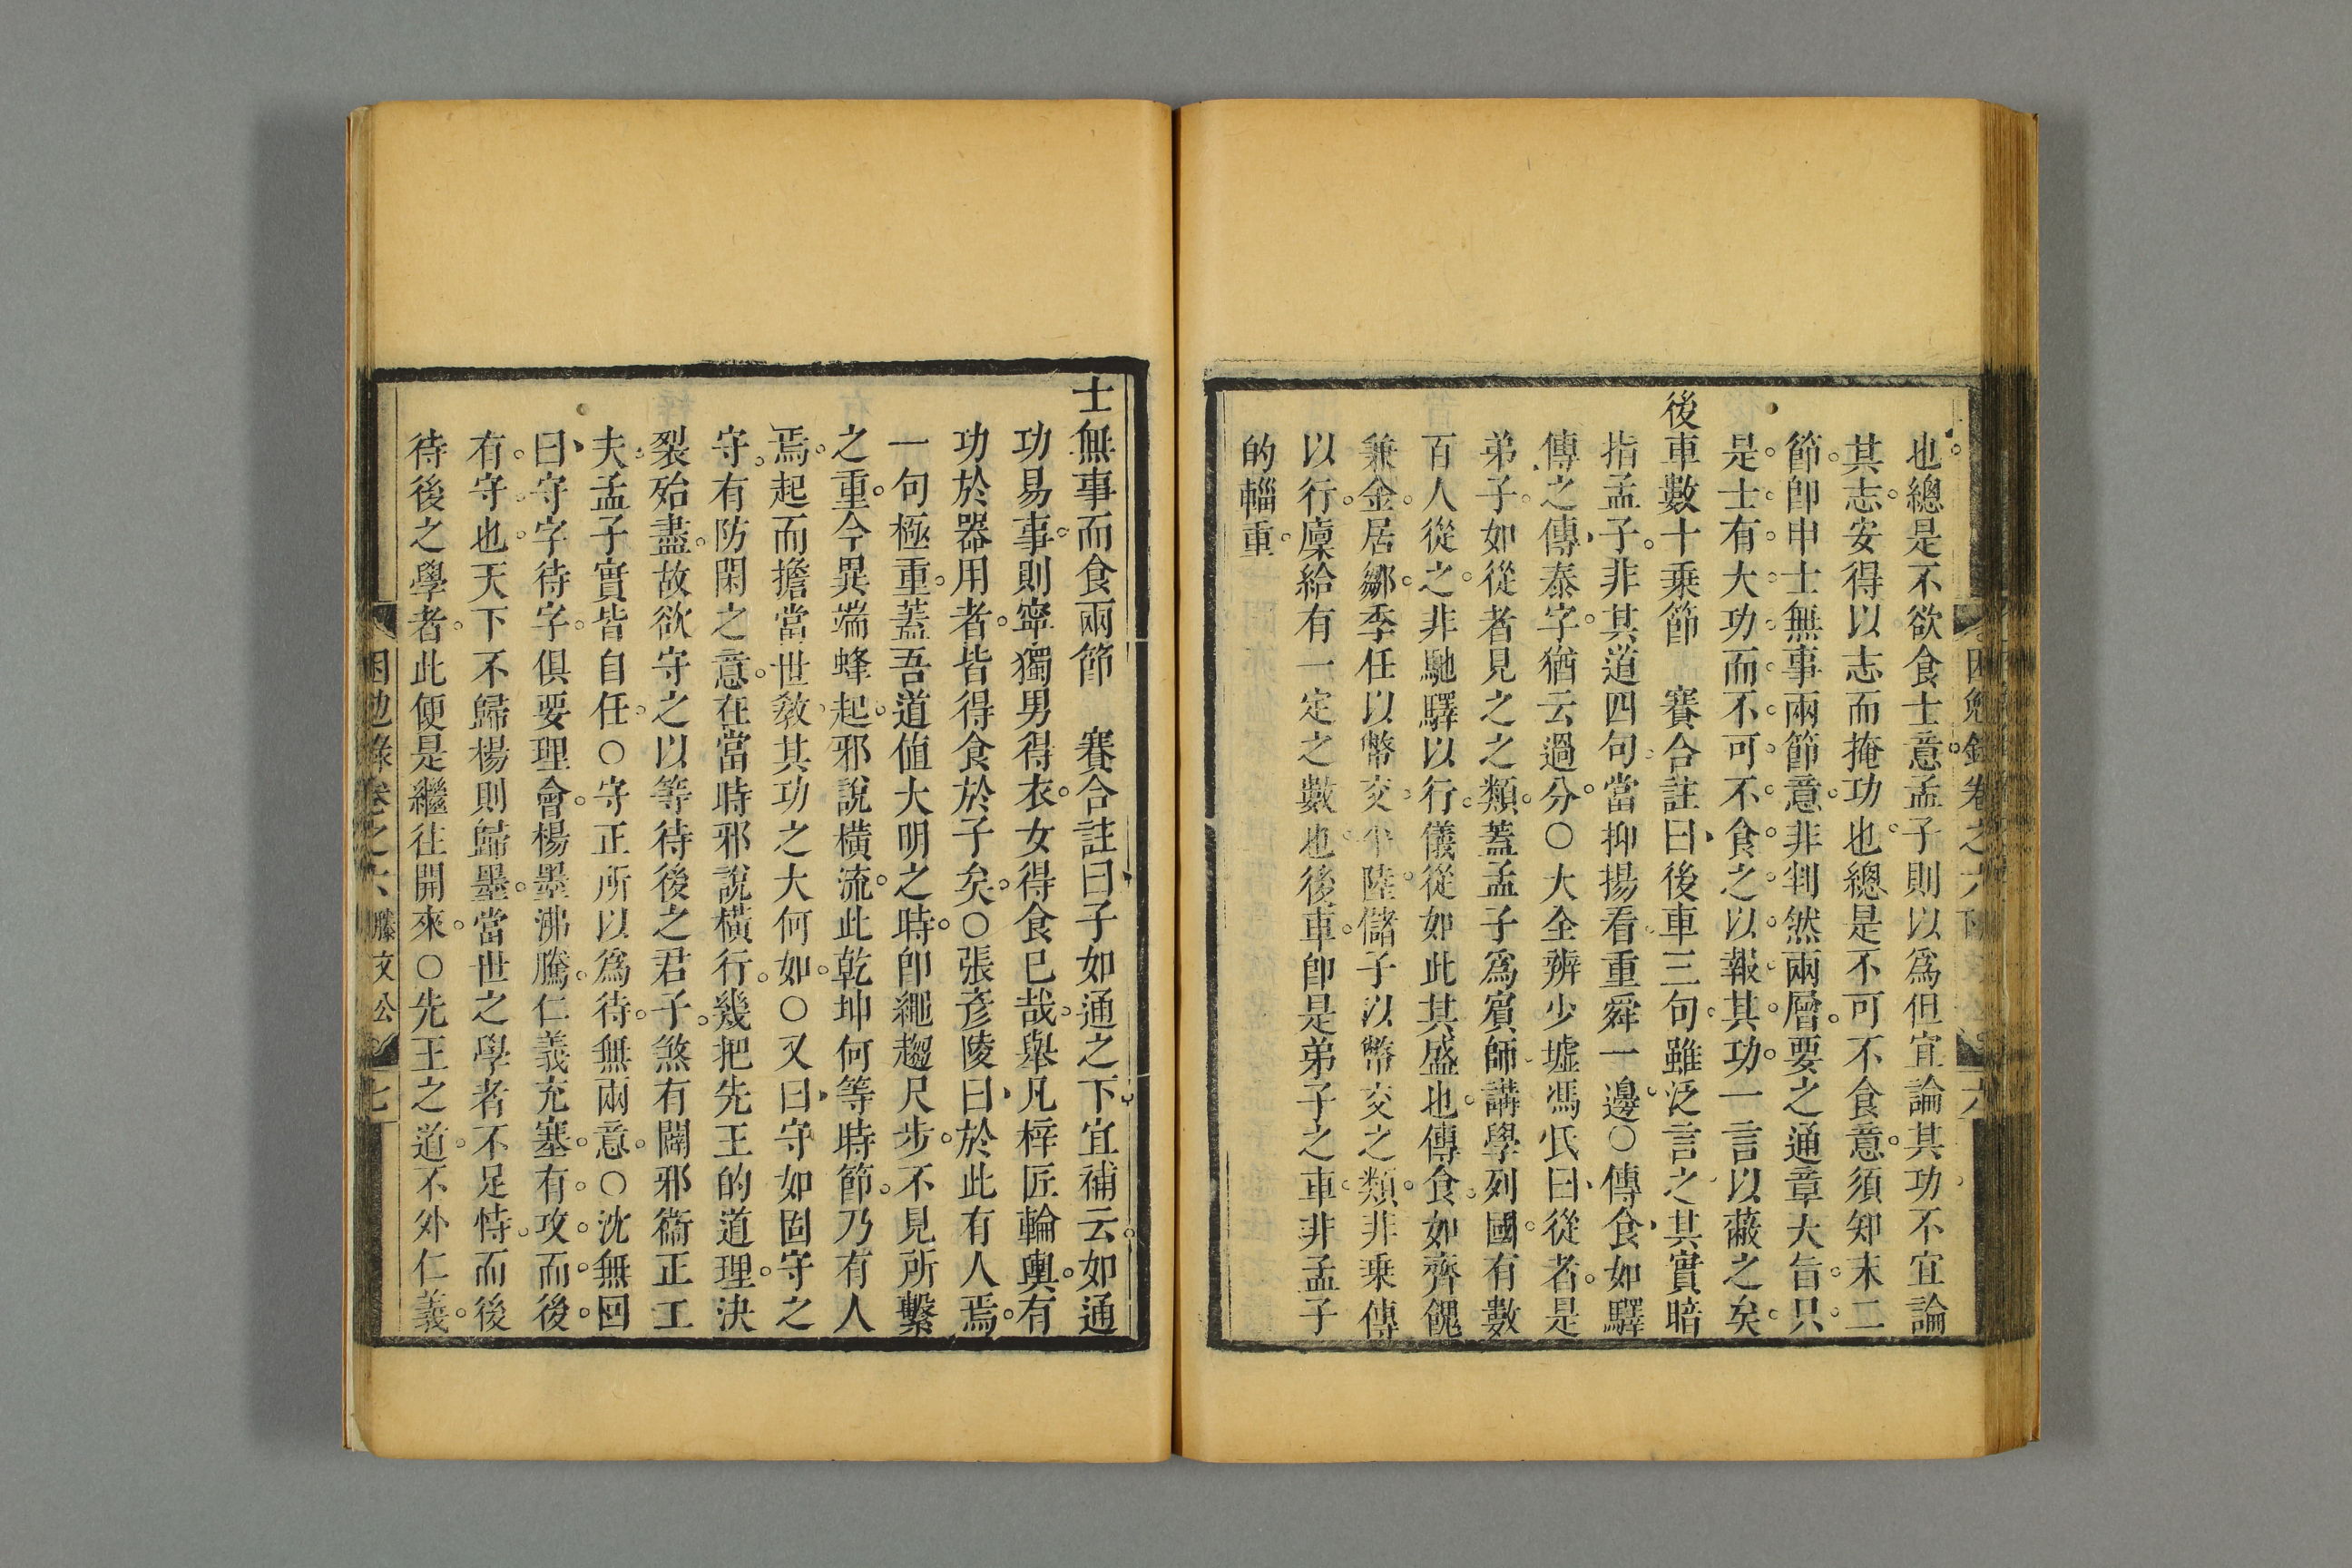 也總是不欲食士意孟子則以爲但宜論其功不宜論
其志安得以志而掩功也總是不可不食意須知末二
節卽申士無事兩節意非判然兩層要之通章大旨只
是士有大功而不可不食之以報其功一言以蔽之矣
後車數十乘節　賽合註曰後車三句雖泛言之其實暗
指孟子非其道四句當抑揚看重舜一邊○傳食如驛
傳之傳泰字猶云過分○大全辨少墟馮氏曰從者是
弟子如從者見之之類蓋孟子爲賓師講學列國有數
百人從之非馳驛以行儀從如此其盛也傳食如齊餽
兼金居鄒季任以幣交平陸儲子以幣交之類非乘傳
以行廩給有一定之數也後車卽是弟子之車非孟子
的輜重
士無事而食兩節　賽合註曰子如通之下宜補云如通
功易事則寧獨男得衣女得食已哉舉凡梓匠輪輿有
功於器用者皆得食於子矣○張彥陵曰於此有人焉
一句極重蓋吾道值大明之時卽繩趨尺步不見所繫
之重今異端蜂起邪說橫流此乾坤何等時節乃有人
焉起而擔當世教其功之大何如○又曰守如固守之
守有防閑之意在當時邪說橫行幾把先王的道理決
裂殆盡故欲守之以等待後之君子煞有闢邪衞正工
夫孟子實皆自任○守正所以爲待無兩意○沈無回
曰守字待字俱要理會楊墨沸騰仁義充塞有攻而後
有守也天下不歸楊則歸墨當世之學者不足恃而後
待後之學者此便是繼往開來○先王之道不外仁義
困勉錄卷之六 滕文公 七